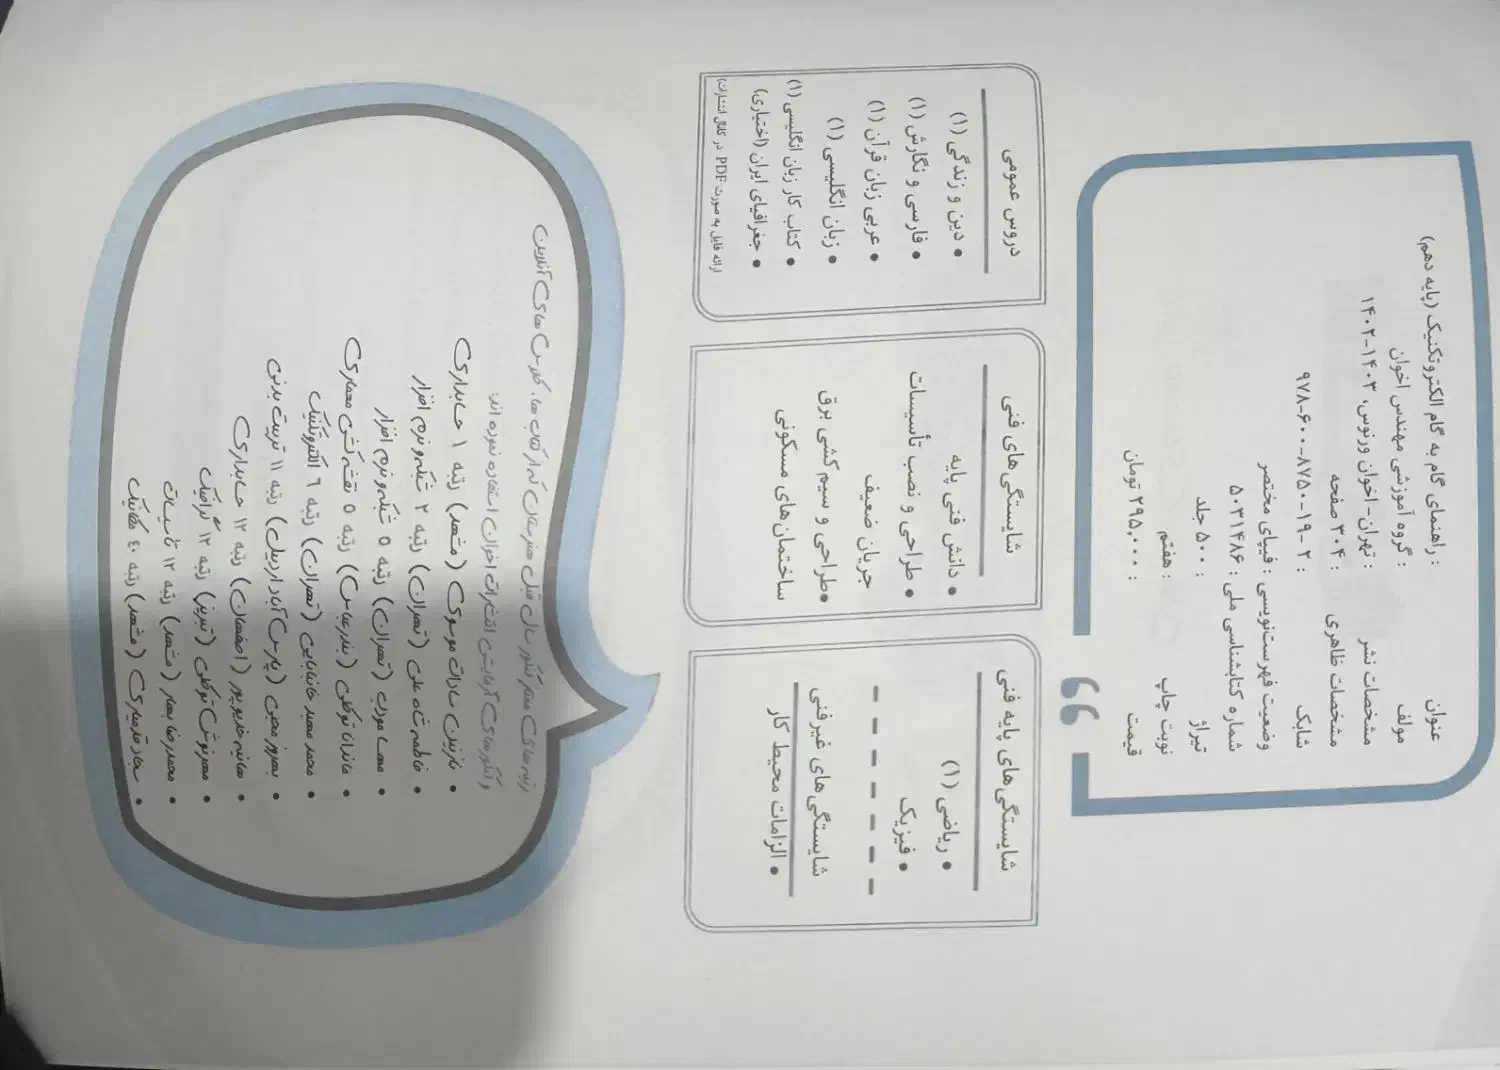 عنوان : راهنمای گام به گام الکتروتکنیک (پایه دهم)
مولف : گروه آموزشی مهندس اخوان
مشخصات نشر : تهران-اخوان ورنوس، ۱۴۰۳-۱۴۰۲
مشخصات ظاهری : ۳۰۴ صفحه
شابک : ۹۷۸-۶۰۰-۸۷۵۰-۱۹-۲
وضعیت فهرست‌نویسی : فیپای مختصر
شماره کتابشناسی ملی : ۵۰۳۱۴۸۶
تیراژ : ۵۰۰ جلد
نوبت چاپ : هفتم
قیمت : ۲۹۵,۰۰۰ تومان
شایستگی‌های پایه فنی
• ریاضی (۱)
• فیزیک
شایستگی‌های غیرفنی
• الزامات محیط کار
شایستگی‌های فنی
• دانش فنی پایه
• طراحی و نصب تأسیسات
جریان ضعیف
•طراحی و سیم‌کشی برق
ساختمان‌های مسکونی
دروس عمومی
• دین و زندگی (۱)
• فارسی و نگارش (۱)
• عربی زبان قرآن (۱)
• زبان انگلیسی (۱)
• کتاب کار زبان انگلیسی (۱)
• جغرافیای ایران (اختیاری)
ارائه فایل به صورت PDF در کانال انتشارات)
رتبه‌های ممتاز کنکور سال قبل هنرستان که از کتاب ها، کلاس های آنلاین
و کنکورهای آزمایشی انتشارات اخوان استفاده نموده اند:
• نازنین سادات موسوی (مشهد) رتبه ۱ حسابداری
• فاطمه شاه علی (تهران) رتبه ۲ شبکه و نرم افزار
• مهسا مودب (تهران) رتبه ۵ شبکه و نرم افزار
• ماندانا توکلی (بندرعباس) رتبه ۵ نقشه کشی معماری
• محمد مجید خانبابایی (تهران) رتبه ۶ الکتروتکنیک
• بهروز محبی (پارس آباد اردبیل) رتبه ۱۱ تربیت بدنی
• هانیه خدیو پور (اصفهان) رتبه ۱۲ حسابداری
• مهرنوش توکلی (تبریز) رتبه ۱۲ گرافیک
• محمدرضا بهار (مشهد) رتبه ۱۲ تاسیسات
• سجاد قدمیاری (مشهد) رتبه ۴۰ مکانیک